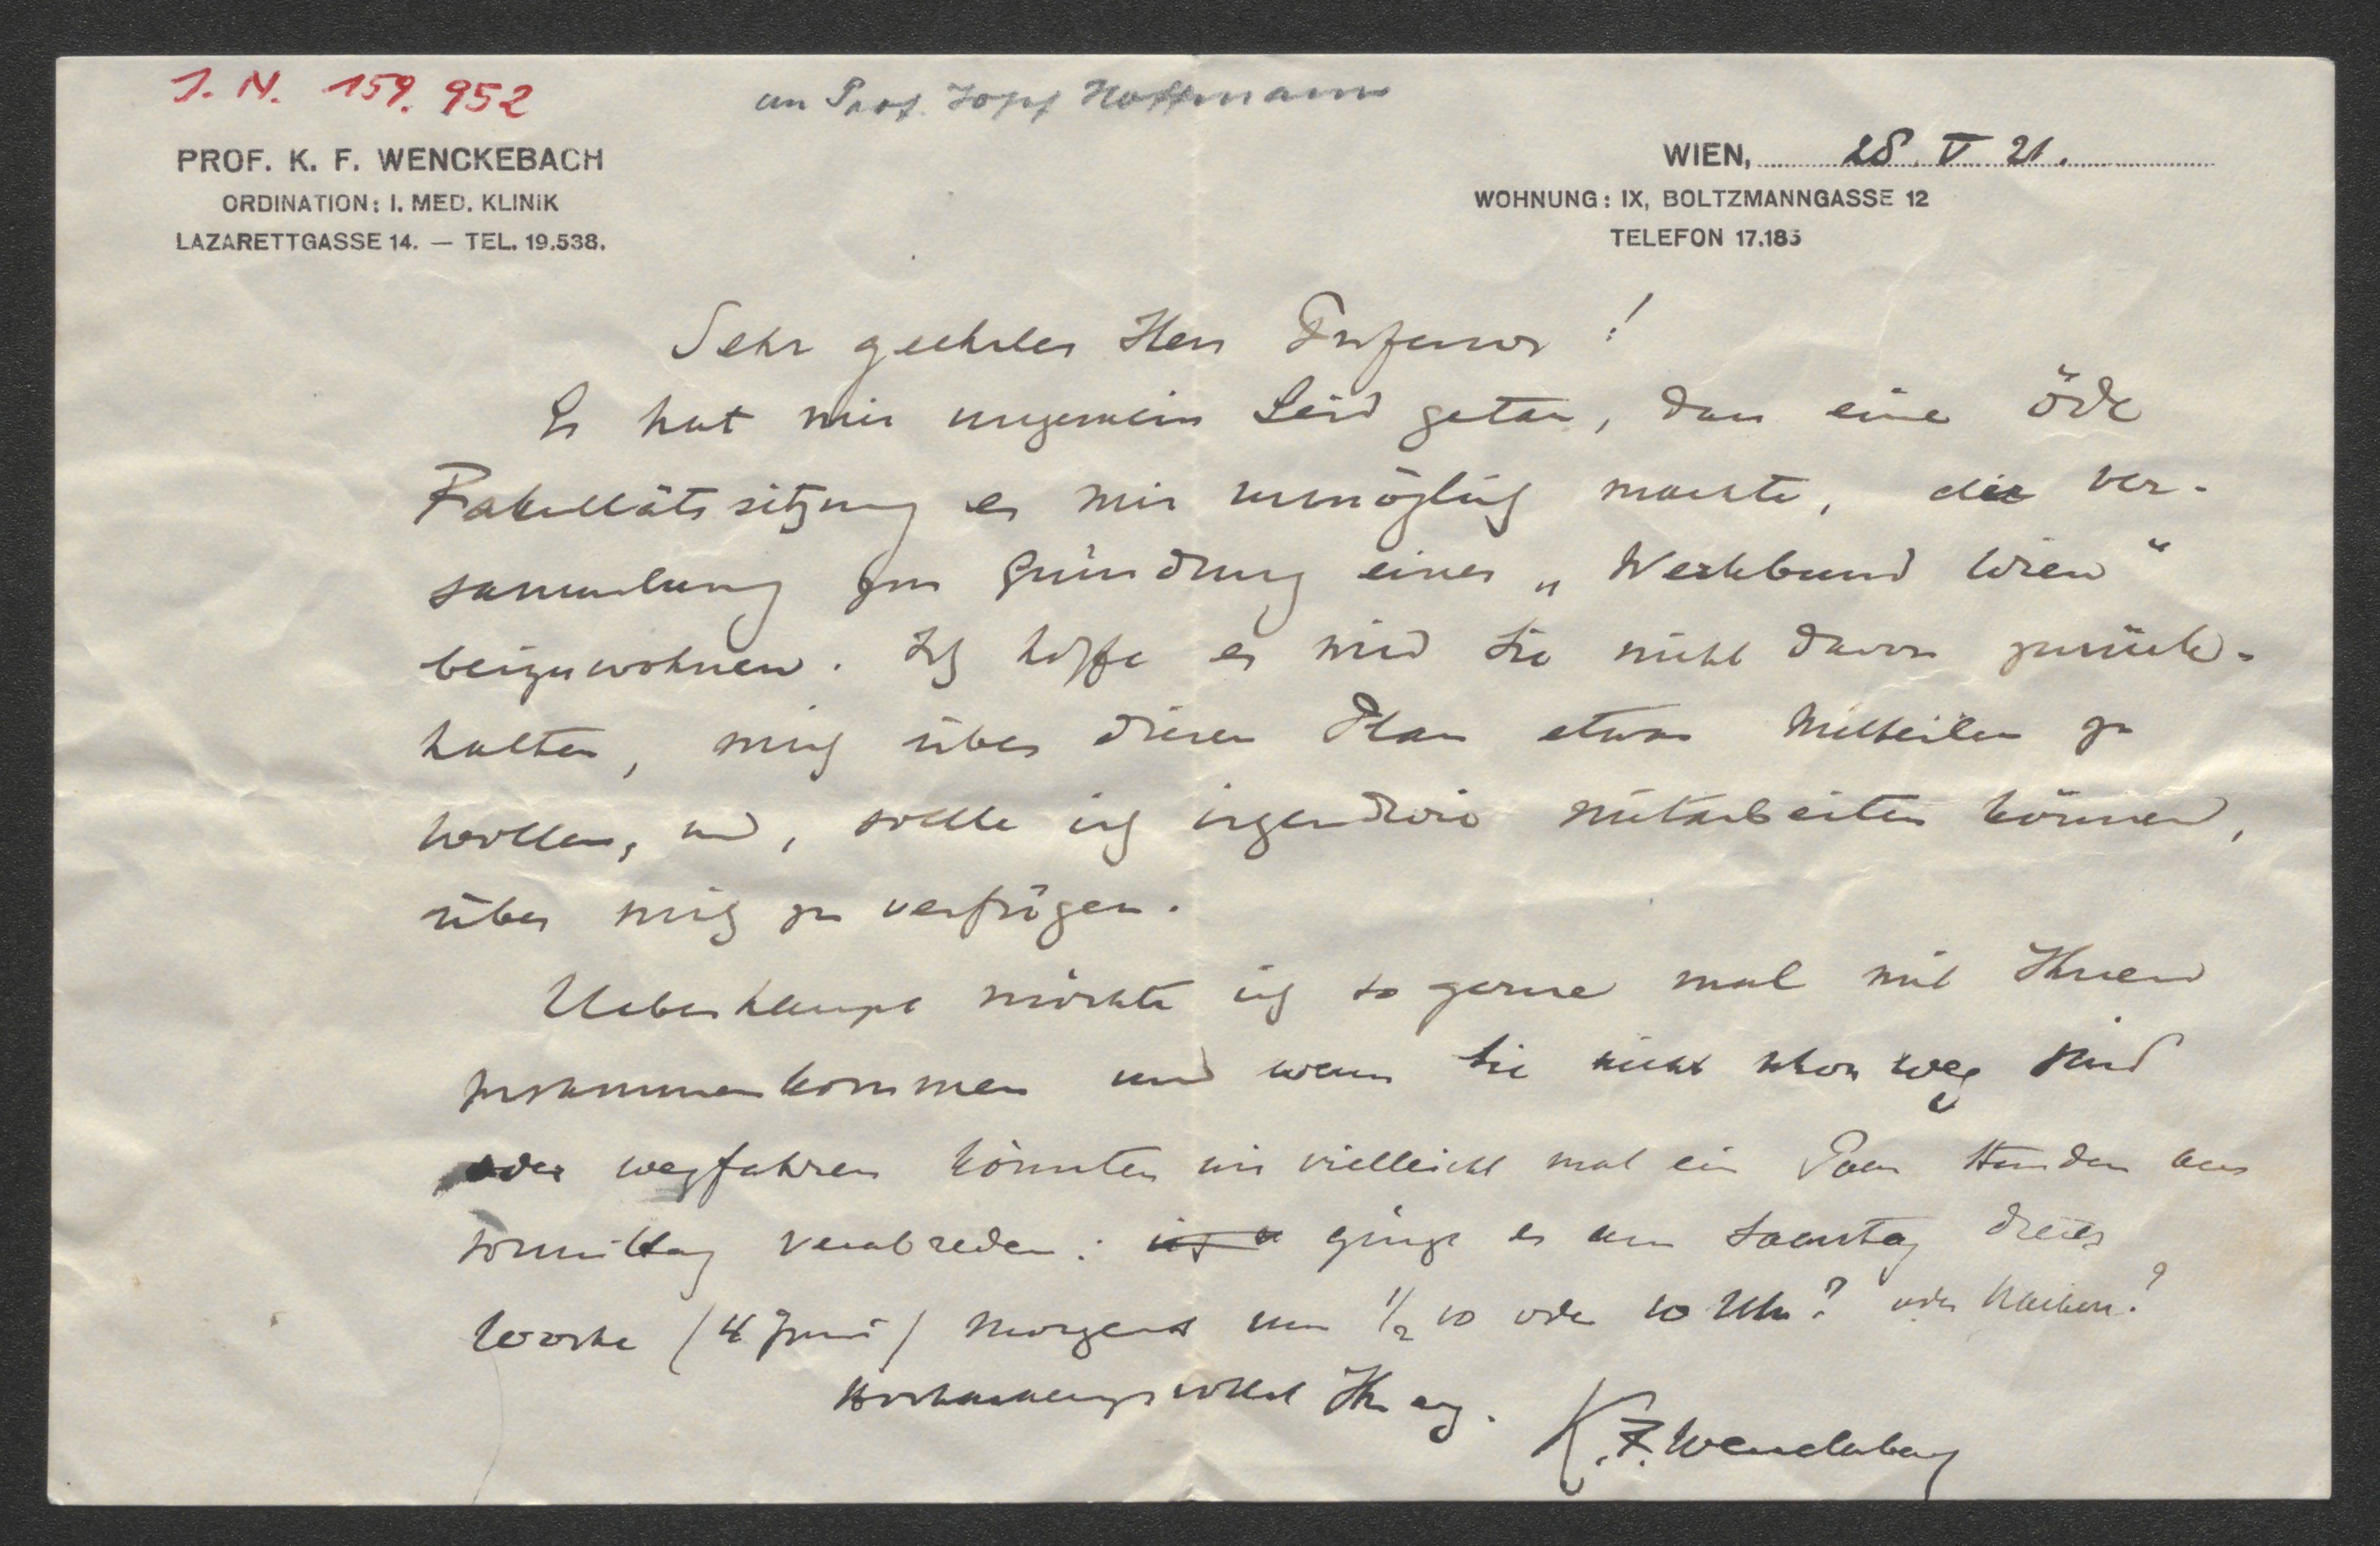 I. N. 159.952
an Prof. Josef Hoffmann
PROF. K. F. WENCKEBACH
ORDINATION: I. MED. KLINIK
LAZARETTGASSE 14. — TEL. 19.538.
WIEN, 28. V 21.
WOHNUNG: IX, BOLTZMANNGASSE 12
TELEFON 17.185
Sehr geehrter Herr Professor!
Es hat mir ungemein Leid getan, dass eine öde
Fakultätssitzung es mir unmöglich machte, die Ver-
sammlung zur Gründung eines „Werkbund Wien“
beizuwohnen. Ich hoffe es wird Sie nicht davon zurück-
halten, mich über diesen Plan etwas Mitteilen zu
wollen, und, sollte ich irgendwie mitarbeiten können,
über mich zu verfügen.
Ueberhaupt möchte ich so gerne mal mit Ihnen
zusammenkommen und wenn Sie nicht schon weg sind
oder wegfahren könnten wir vielleicht mal ein Paar Stunden am
Vormittag verabreden: ginge es am Samstag dieser
Woche (4 Juni) Morgens um ½ 10 oder 10 Uhr? oder
Hochachtungsvollst Ihr erg.
K. F. Wenckebach